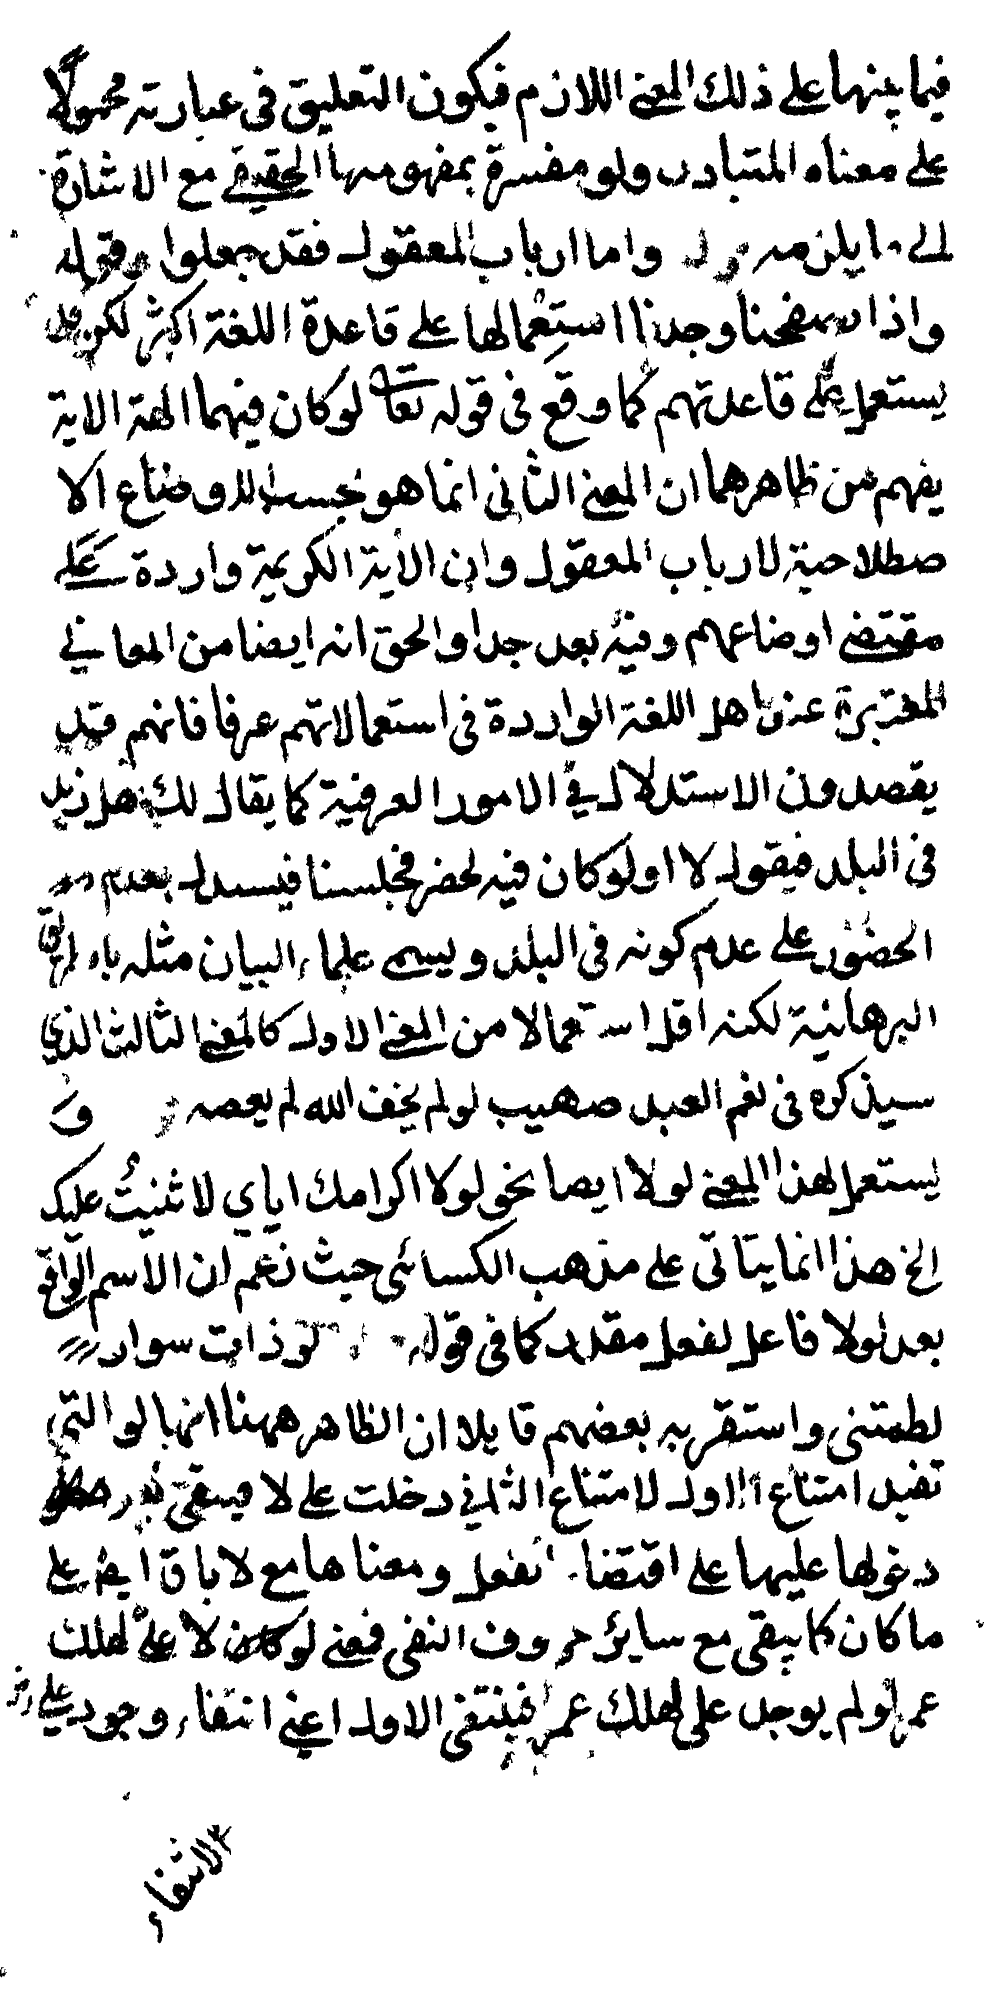 فيما بينهما على ذلك المعنى اللازم فيكون التعليق في عبارته محمولا
على معناه المتبادر ولو مفسرة بمفهومها الحقيقي مع الاشارة
الى ما يلزمه واما ارباب المعقول فقد جعلوا وقوله
واذا تصفحنا وجدنا استعمالها على قاعدة اللغة اكثر لكن قد
يستعمل على قاعدتهم كما وقع في قوله تعا لو كان فيهما الهة الاية
يفهم من ظاهرهما ان المعنى الثاني انما هو بحسب الاوضاع الا
صطلاحية لارباب المعقول وان الاية الكريمة واردة على
مقتضى اوضاعهم وفيه بعد جدا والحق انه ايضا من المعاني
المعتبرة عند اهل اللغة الواردة في استعمالاتهم عرفا فانهم قد
يقصدون الاستدلال في الامور العرفية كما يقال لك هل زيد
في البلد فيقول لا او لو كان فيه لحضر مجلسنا فيستدل بعدم
الحضور على عدم كونه في البلد ويسمى علماء البيان مثله بالطريقة
البرهانية لكنه اقل استعمالا من المعنى الاول كالمعنى الثالث الذي
سيذكره في نعم العبد صهيب لو لم يخف الله لم يعصه و
يستعمل لهذا المعنى لولا ايضا نحو لولا اكرامك اياي لاثنيت عليك
الخ هذا انما يتاتى على مذهب الكسائي حيث زعم ان الاسم الواقع
بعد لولا فاعل لفعل مقدر كما في قوله لو ذات سوار
لطمتني واستقر به بعضهم قايلا ان الظاهر ههنا انها لو التي
تفيد امتناع الاول لامتناع الثاني دخلت على لا فيبقى
دخولها عليها على اقتضاء الفعل ومعناها مع لا باق ايضا على
ما كان كما يبقى مع ساير حروف النفي فمعنى لولا علي لهلك
عمر لو لم يوجد على لهلك عمر فينتفى الاول اعني انتفاء وجود على
لانتفاء